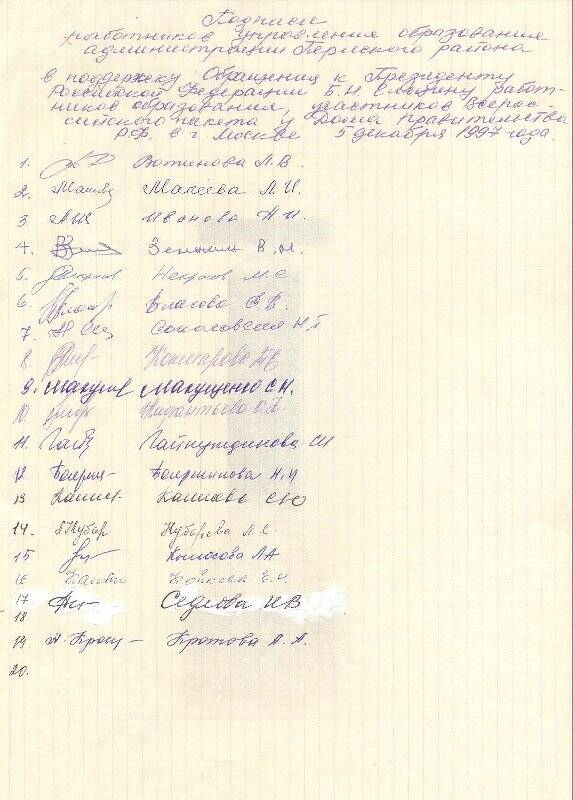 Подписи
работников управления образования
администрации Пермского района
в поддержку Обращения к Президенту
Российской Федерации Б.Н. Ельцину работ-
ников образования, участников Всерос-
сийского пикета у Дома Правительства
РФ в г. Москве 5 декабря 1997 года.
1. Вотинова Л.В.
2. Макеева Л.И.
3 Иванова Н.И.
4. В.М.
5. Некрасов М.С
6. Власова В.В.
7. Соколовская Н.Г
8.
9. Макущенко С.Н.
10.
11. Гайнутдинова Ш
12 Бояршинова Н.И
13 Катаева С.Ю
14. Л.С.
15 Колосова Л.А
16 Бойкова Е.И.
17 Седлова И.В
18
19 Кротова А.А.
20.